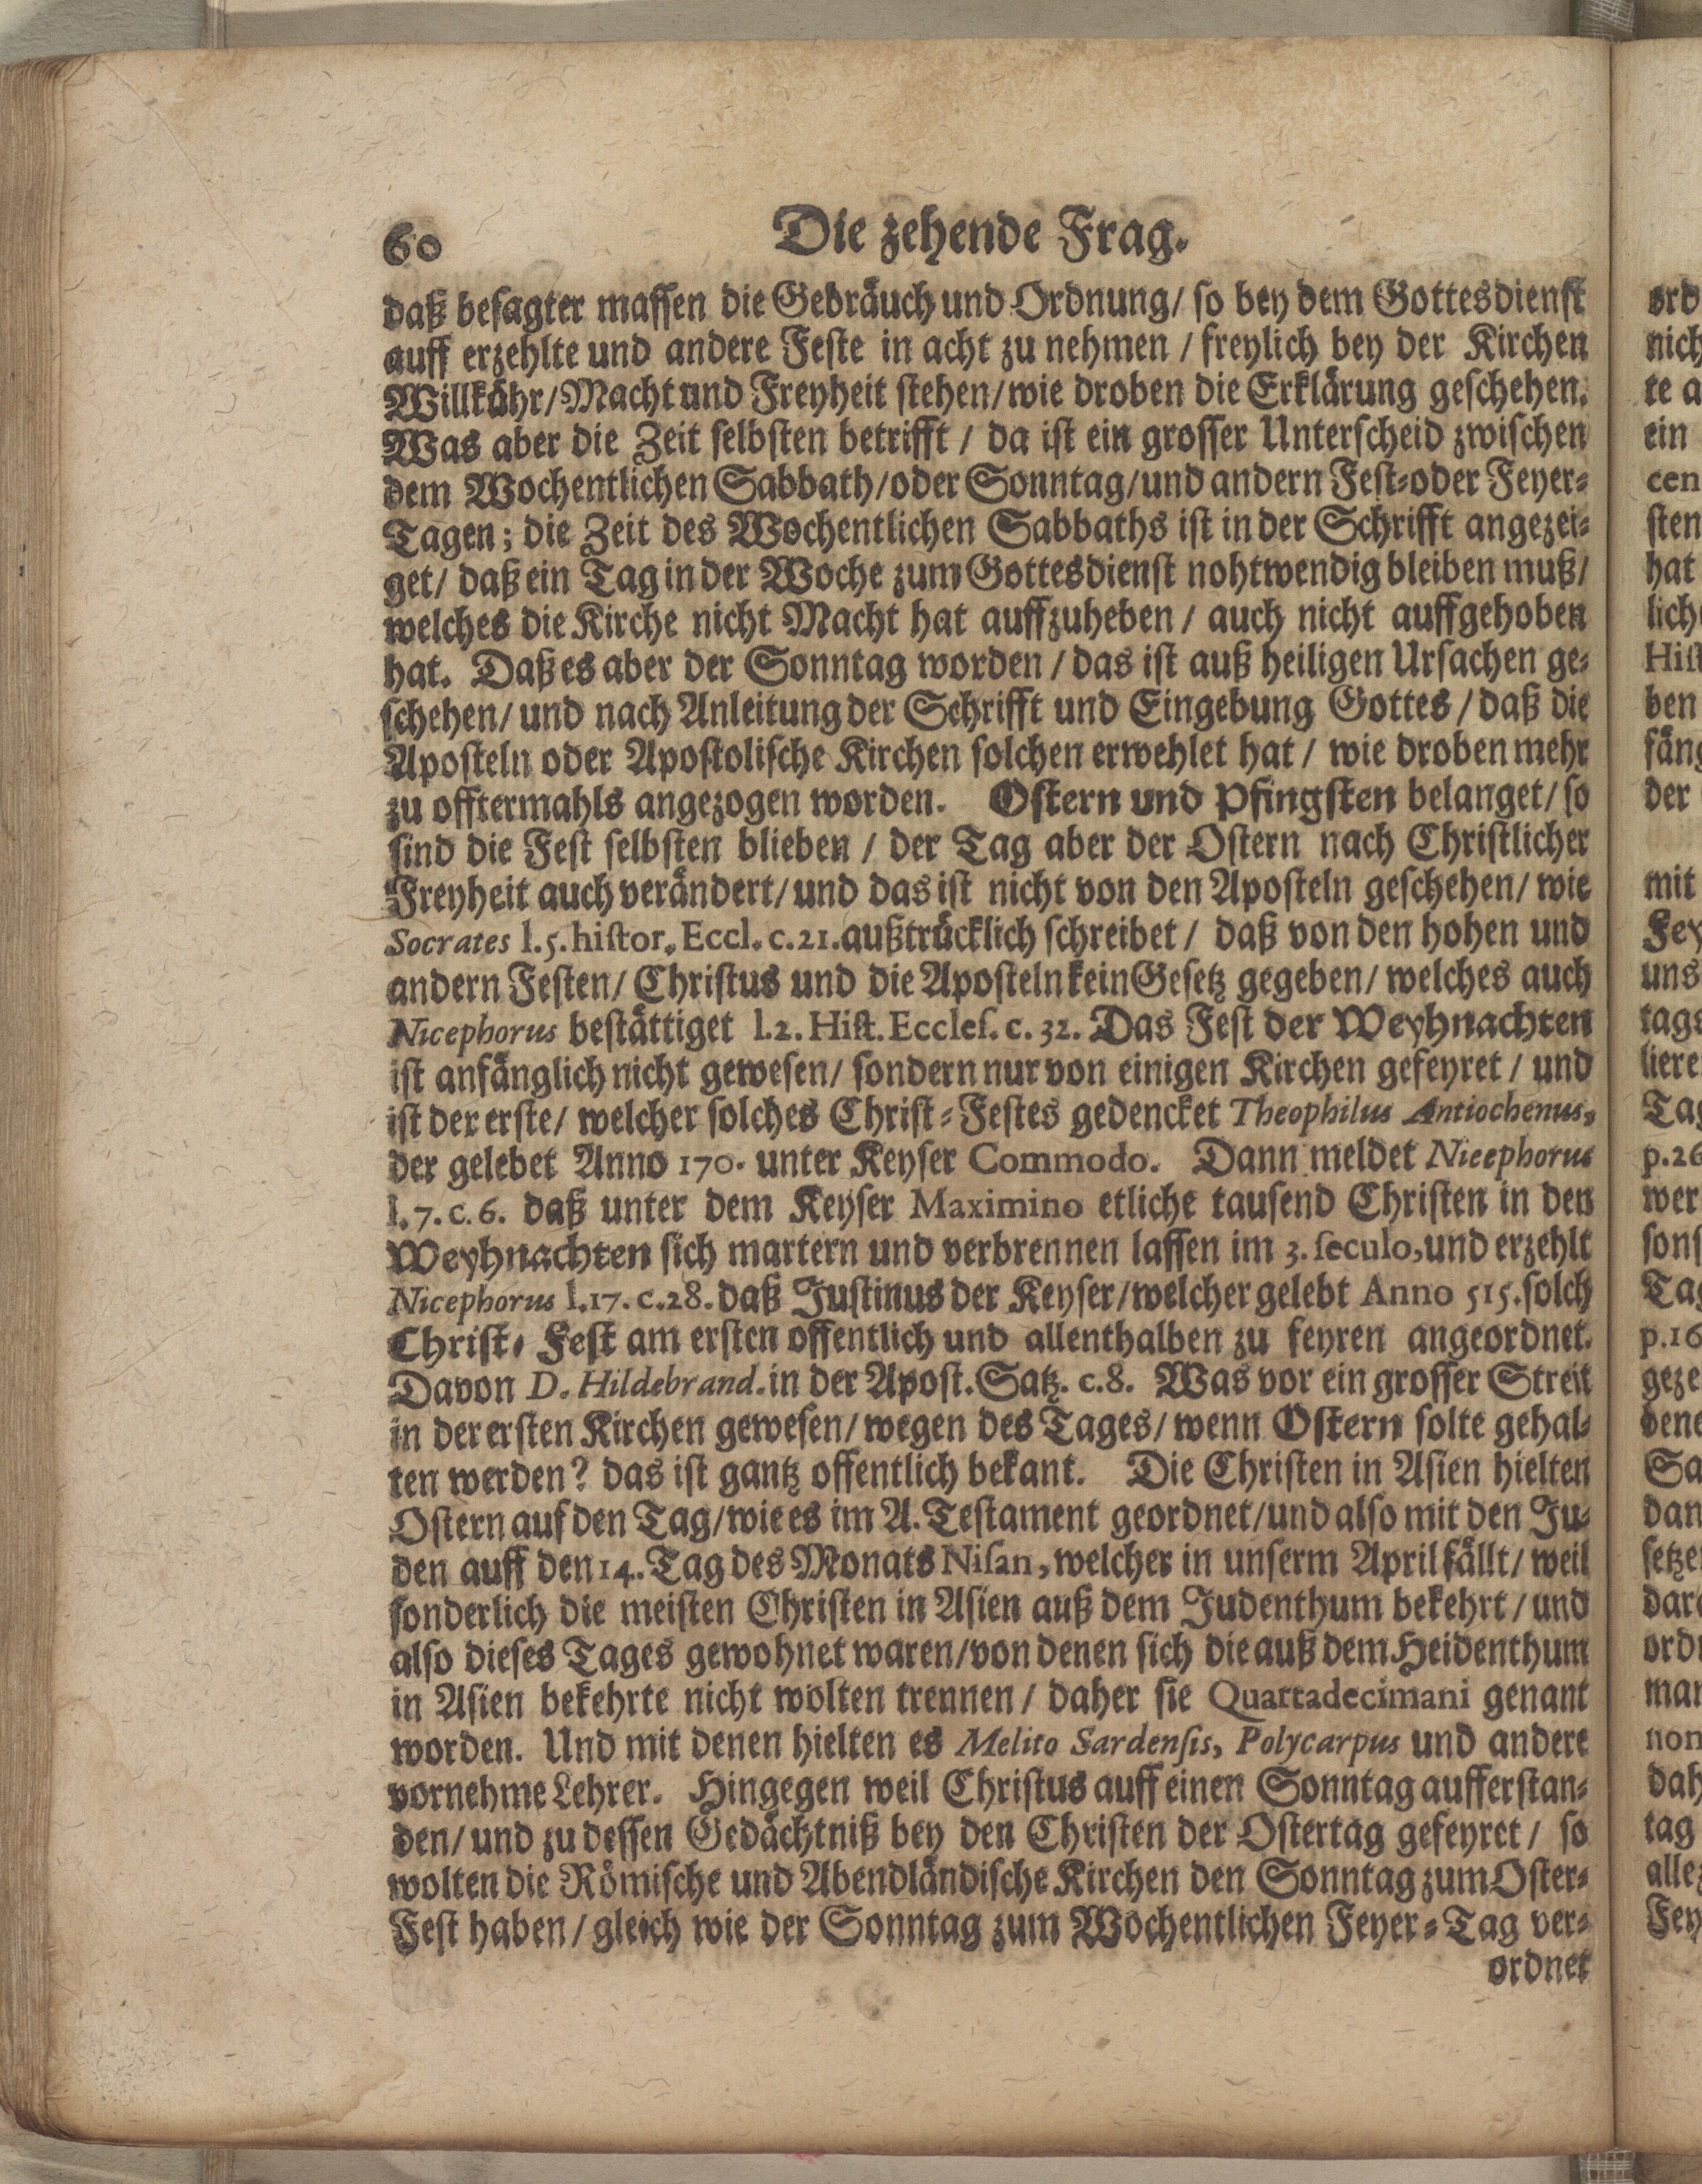 60 Die zehende Frag.
daß besagter massen die Gebräuch und Ordnung/ so bey dem Gottesdienst
auff erzehlte und andere Feste in acht zu nehmen / freylich bey der Kirchen
Willkühr/Macht und Freyheit stehen/wie droben die Erklärung geschehen.
Was aber die Zeit selbsten betrifft / da ist ein grosser Unterscheid zwischen
dem Wochentlichen Sabbath/oder Sonntag/und andern Fest-oder Feyer-
Tagen; die Zeit des Wochentlichen Sabbaths ist in der Schrifft angezei-
get/ daß ein Tag in der Woche zum Gottesdienst nohtwendig bleiben muß/
welches die Kirche nicht Macht hat auffzuheben / auch nicht auffgehoben
hat. Daß es aber der Sonntag worden / das ist auß heiligen Ursachen ge-
schehen/ und nach Anleitung der Schrifft und Eingebung Gottes / daß die
Aposteln oder Apostolische Kirchen solchen erwehlet hat / wie droben mehr
zu offtermahls angezogen worden. Ostern und Pfingsten belanget/ so
sind die Fest selbsten blieben / der Tag aber der Ostern nach Christlicher
Freyheit auch verändert/ und das ist nicht von den Aposteln geschehen/ wie
Socrates l.5. histor. Eccl. c.21. außtrücklich schreibet / daß von den hohen und
andern Festen/ Christus und die Aposteln kein Gesetz gegeben/ welches auch
Nicephorus bestättiget l.2. Hist. Eccles. c. 32. Das Fest der Weyhnachten
ist anfänglich nicht gewesen/ sondern nur von einigen Kirchen gefeyret / und
ist der erste/ welcher solches Christ-Festes gedencket Theophilus Antiochenus,
der gelebet Anno 170. unter Keyser Commodo. Dann meldet Nicephorus
l. 7. c. 6. daß unter dem Keyser Maximino etliche tausend Christen in den
Weyhnachten sich martern und verbrennen lassen im 3. seculo, und erzehlt
Nicephorus l.17. c.28. daß Justinus der Keyser/welcher gelebt Anno 515. solch
Christ-Fest am ersten offentlich und allenthalben zu feyren angeordnet.
Davon D. Hildebrand. in der Apost. Satz. c.8. Was vor ein grosser Streit
in der ersten Kirchen gewesen/ wegen des Tages/ wenn Ostern solte gehal-
ten werden? das ist gantz offentlich bekant. Die Christen in Asien hielten
Ostern auf den Tag/wie es im A. Testament geordnet/und also mit den Ju-
den auff den 14. Tag des Monats Nisan, welcher in unserm April fällt/ weil
sonderlich die meisten Christen in Asien auß dem Judenthum bekehrt / und
also dieses Tages gewohnet waren/von denen sich die auß dem Heidenthum
in Asien bekehrte nicht wolten trennen / daher sie Quartadecimani genant
worden. Und mit denen hielten es Melito Sardensis, Polycarpus und andere
vornehme Lehrer. Hingegen weil Christus auff einen Sonntag aufferstan-
den/ und zu dessen Gedächtniß bey den Christen der Ostertag gefeyret / so
wolten die Römische und Abendländische Kirchen den Sonntag zum Oster-
Fest haben / gleich wie der Sonntag zum Wochentlichen Feyer-Tag ver-
ordnet
ord
nich
te a
ein
cen
sten
hat
lich
Hist
ben
fäng
der
mit
Fey
uns
tags
liere
Tag
p.26
wer
sons
Tag
p.16
geze
dene
Sa
dan
setze
dar
ord
man
non
dah
tag
alle
Fey